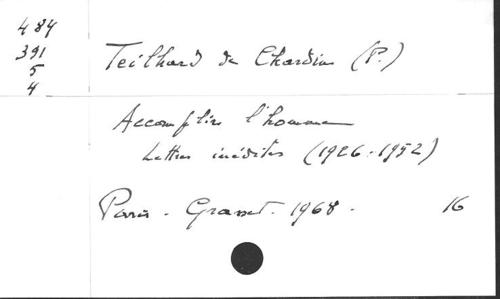 484
391
5
4
Teilhard de Chardin (P.)
Accomplir l'homme
Lettres inédites (1926-1952)
Paris - Grasset - 1968 - 16